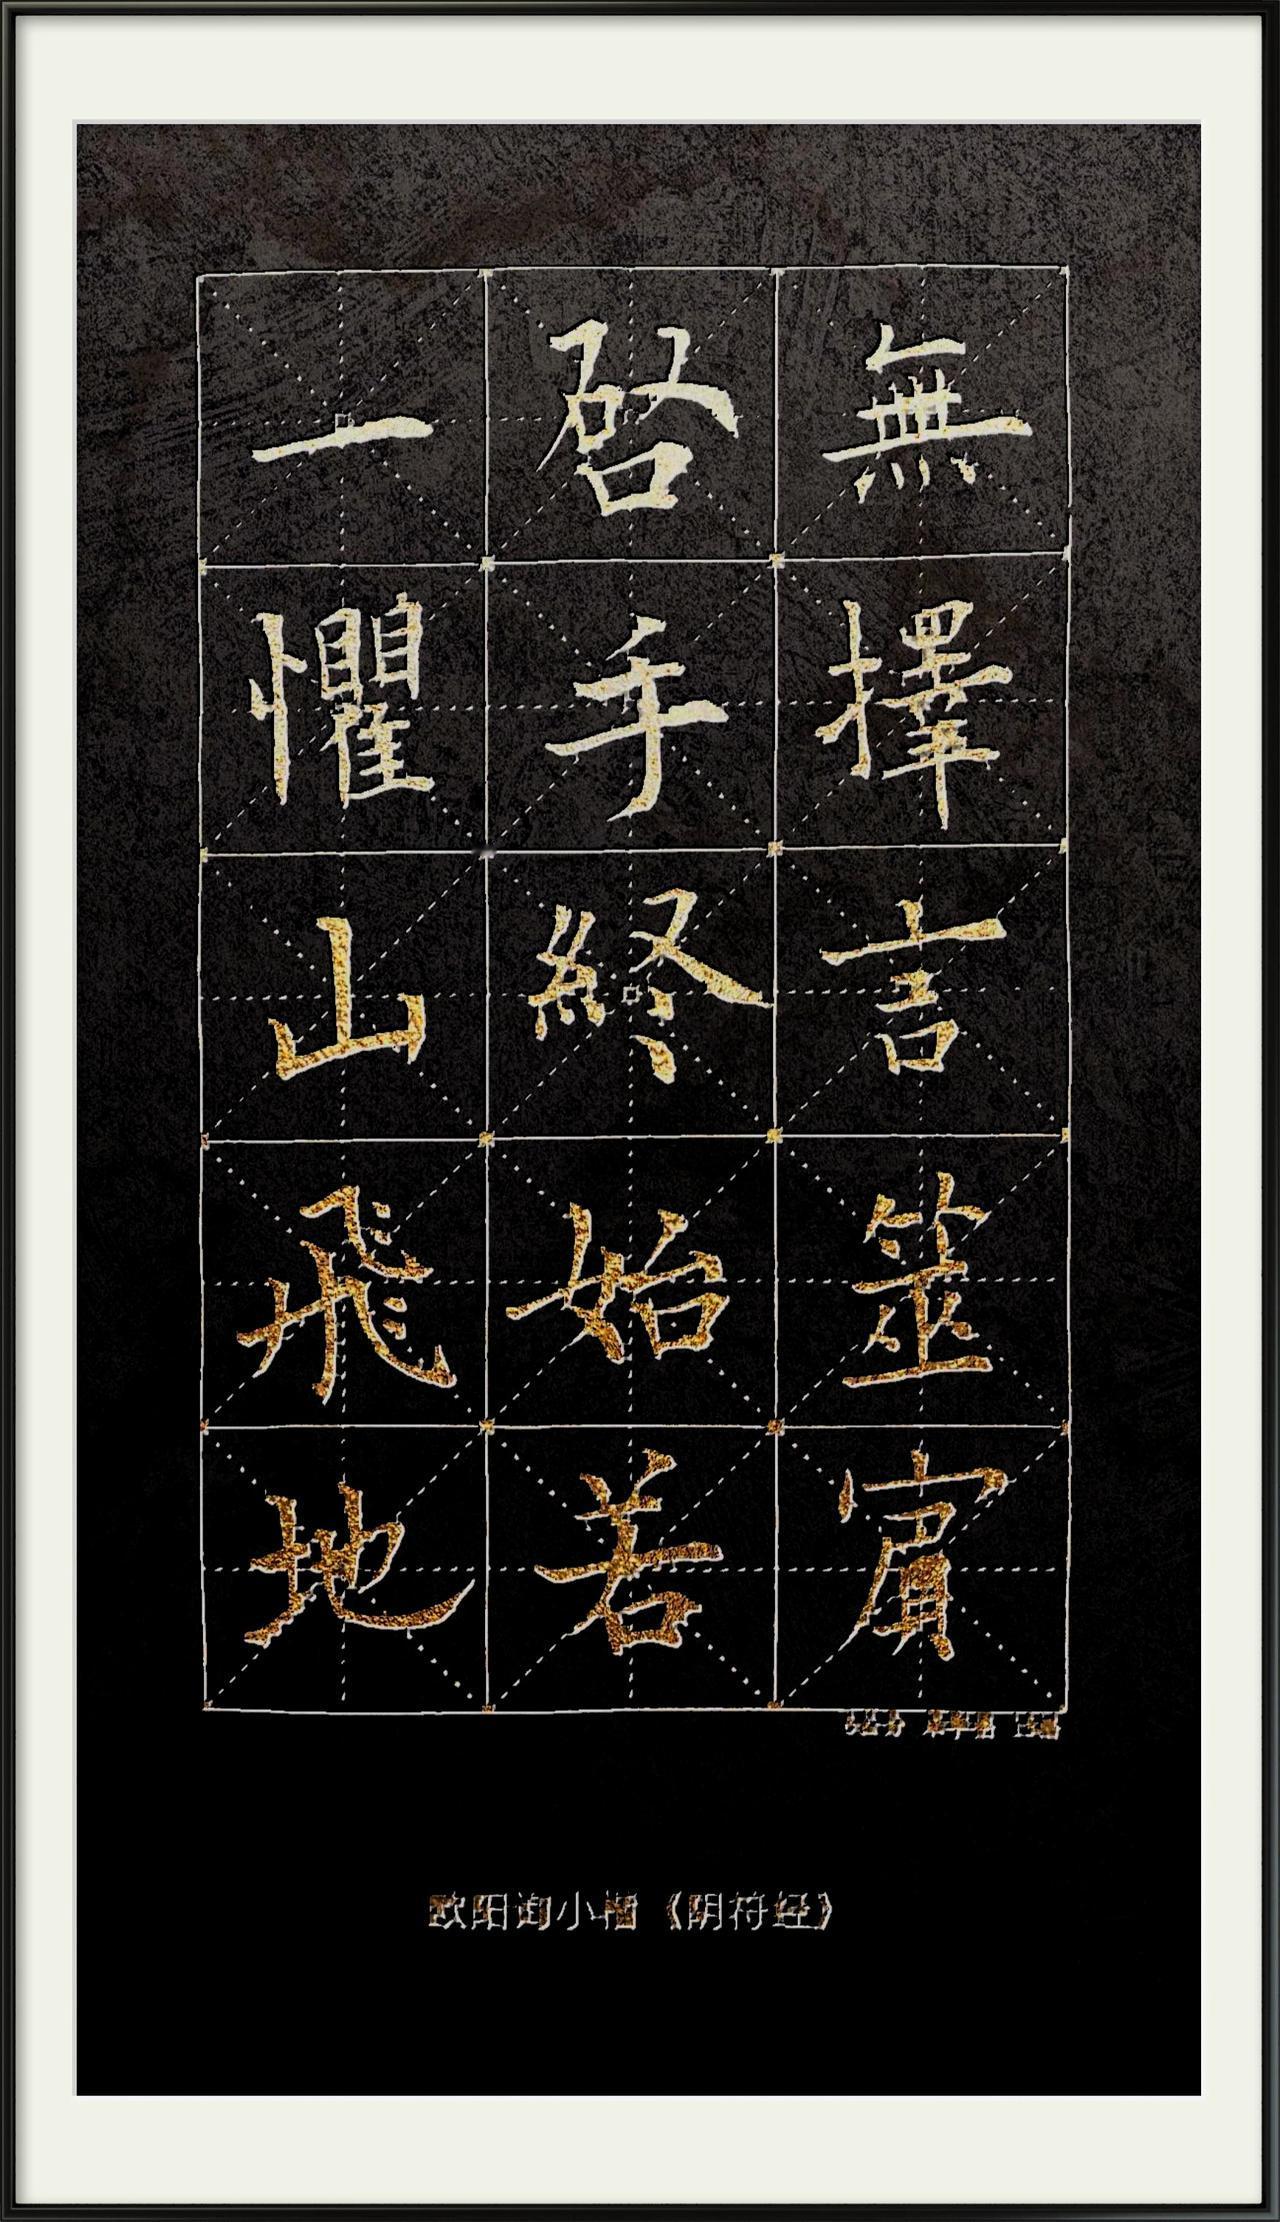 無擇言筮賔
啓手終始若
一懼山飛地
欧阳询小楷《阴符经》